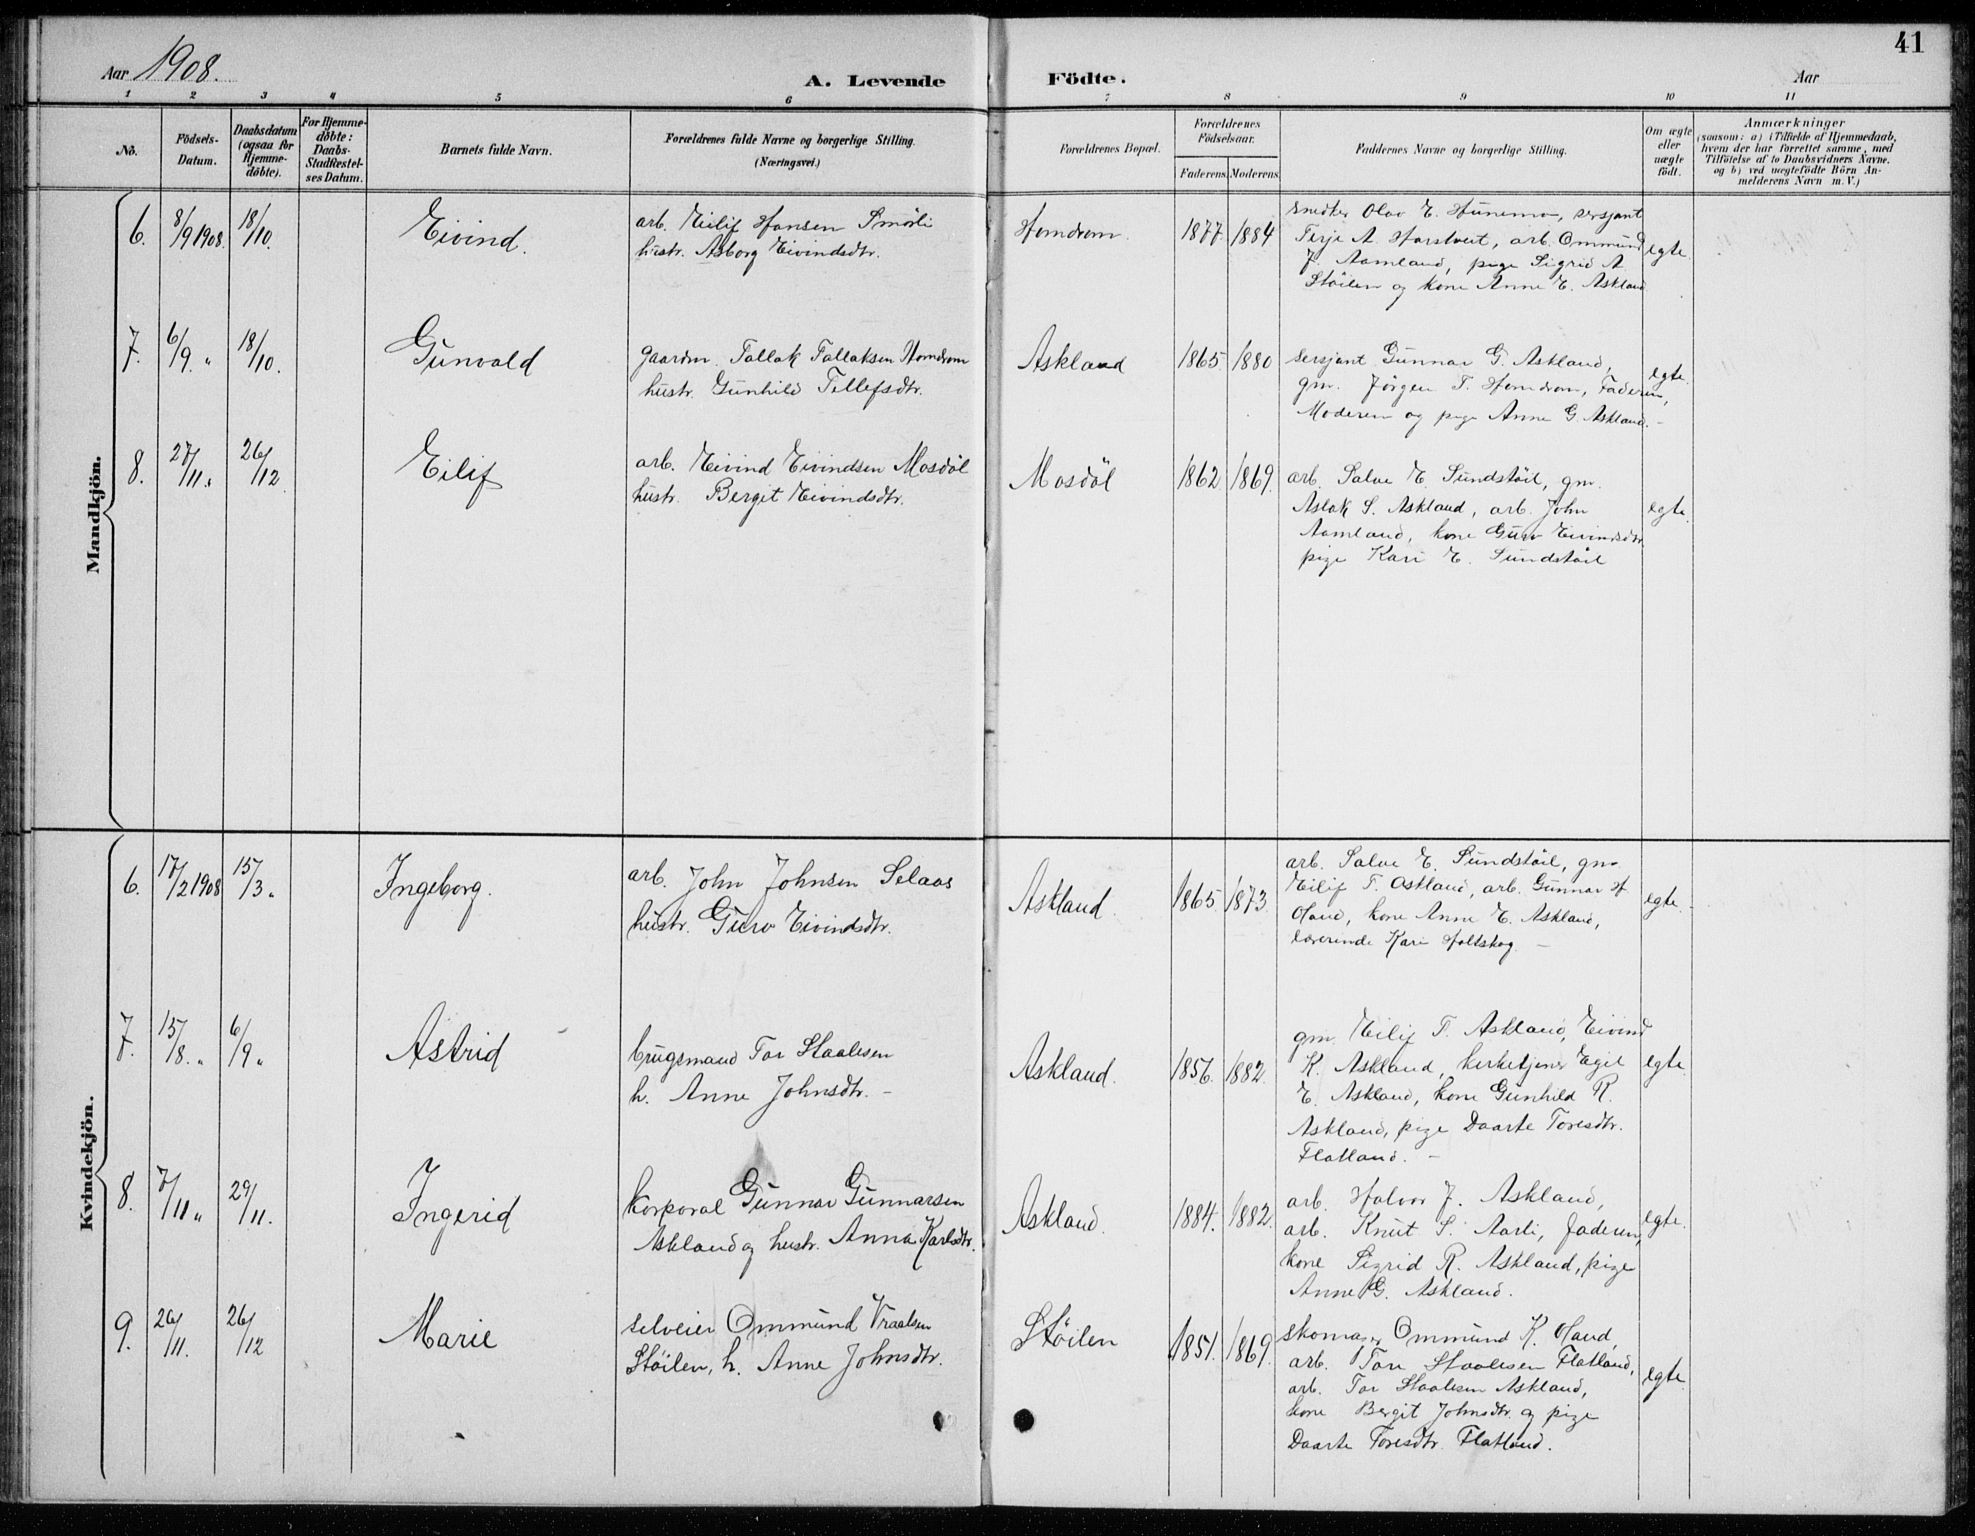 41
Aar 1908.
A. Levende Födte.
Aar
1 2 3 4 5 6 7 8 9 10 11
No.
Födsels-
Datum.
Daabsdatum
(ogsaa for
Hjemme-
döbte).
For Hjemme-
döbte:
Daabs-
Stadfæstel-
ses Datum.
Barnets fulde Navn.
Forældrenes fulde Navne og borgerlige Stilling.
(Næringsvei.)
Forældrenes Bopæl.
Forældrenes
Födselsaar.
Faderens. Moderens.
Faddernes Navne og borgerlige Stilling.
Om ægte
eller
uægte
födt.
Anmærkninger
(saasom: a) i Tilfælde af Hjemmedaab,
hvem der har forrettet samme, med
Tilföielse af to Daabsvidners Navne.
og b) ved uægtefödte Börn An-
melderens Navn m. V.)
Mandkjön.
6. 8/9 1908. 18/10. Eivind.
arb. Eilif Hansen Smörli
hustr. Asborg Eivindsdtr.
Homdrom. 1877. 1884
snedker Olav E. Hunemo, sersjant
Terje A. Harstveit, arb. Ommund
J. Aamland, pige Sigrid A.
Stöilen og kone Anne E. Askland
egte
7. 6/9. „ 18/10. Gunvald
gaardm. Tallak Tallaksen Homdrom
hustr. Gunhild Tellefsdtr.
Askland 1865. 1880
sersjant Gunnar G. Askland,
gm. Jörgen T. Homdrom, Faderen,
Moderen og pige Anne G. Askland. -
egte.
8. 27/11. „ 26/12 Eilif
arb. Eivind Eivindsen Mosdöl
hustr. Bergit Eivindsdtr.
Mosdöl 1862 1869.
arb. Salve E. Sundstöil, gm.
Aslak S. Askland, arb. John
Aamland, kone Guro Eivindsdtr.
pige Kari E. Sundstöil
egte.
Kvindekjön.
6. 17/2 1908 15/3 „ Ingeborg.
arb. John Johnsen Selaas
hustr. Guro Eivindsdtr.
Askland. 1865. 1873.
arb. Salve E. Sundstöil, gm.
Eilif T. Askland, arb. Gunnar H.
Oland, kone Anne E. Askland,
lærerinde Kari Holtskog -
egte.
7. 15/8. „ 6/9 „ Astrid
brugsmand Tor Staalesen
h. Anne Johnsdtr. -
Askland. 1856. 1882.
gm. Eilif T. Askland, Eivind
K. Askland, kirketjener Egil
E. Askland, kone Gunhild R.
Askland, pige Daarte Toresdtr.
Flatland. -
egte.
8. 7/11 „ 29/11. Ingerid
korporal Gunnar Gunnarsen
Askland og hustr. Anna Karlsdtr.
Askland. 1884. 1882.
arb. Halvor J. Askland,
arb. Knut S. Aarli, Faderen,
kone Sigrid R. Askland, pige
Anne G. Askland.
egte.
9. 26/11. 26/12 Marie
selveier Ommund Vraalsen
Stöilen, h. Anne Johnsdtr.
Stöilen 1851. 1869.
skomager Ommund K. Oland,
arb. Tore Staalesen Flatland,
arb. Tor Staalesen Askland,
kone Bergit Johnsdtr. og pige
Daarte Toresdtr. Flatland.
egte.